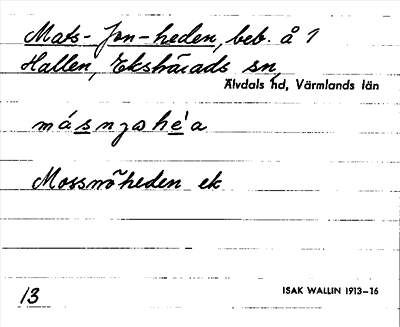 Mats-Jon-heden, beb. å 1
Hallen, Ekshärads sn,
Älvdals hd, Värmlands län
Mossnöheden ek
13
ISAK WALLIN 1913-16